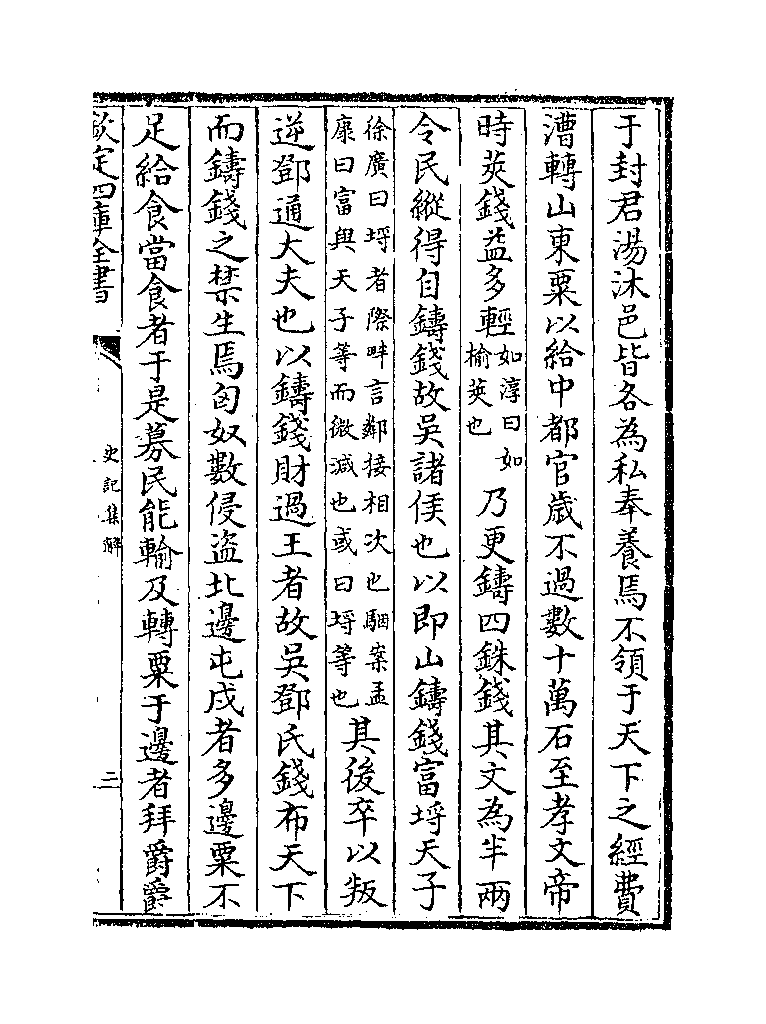 于封君湯沐邑皆各為私奉養焉不領于天下之經費
漕轉山東粟以給中都官歲不過數十萬石至孝文帝
時莢錢益多輕如淳曰如榆莢也乃更鑄四銖錢其文為半兩
令民縱得自鑄錢故吳諸侯也以即山鑄錢富埒天子
徐廣曰埒者際畔言鄰接相次也駰案孟康曰富與天子等而微減也或曰埒等也其後卒以叛
逆鄧通大夫也以鑄錢財過王者故吳鄧氏錢布天下
而鑄錢之禁生焉匈奴數侵盜北邊屯戍者多邊粟不
足給食當食者于是募民能輸及轉粟于邊者拜爵爵
欽定四庫全書
史記集解
二